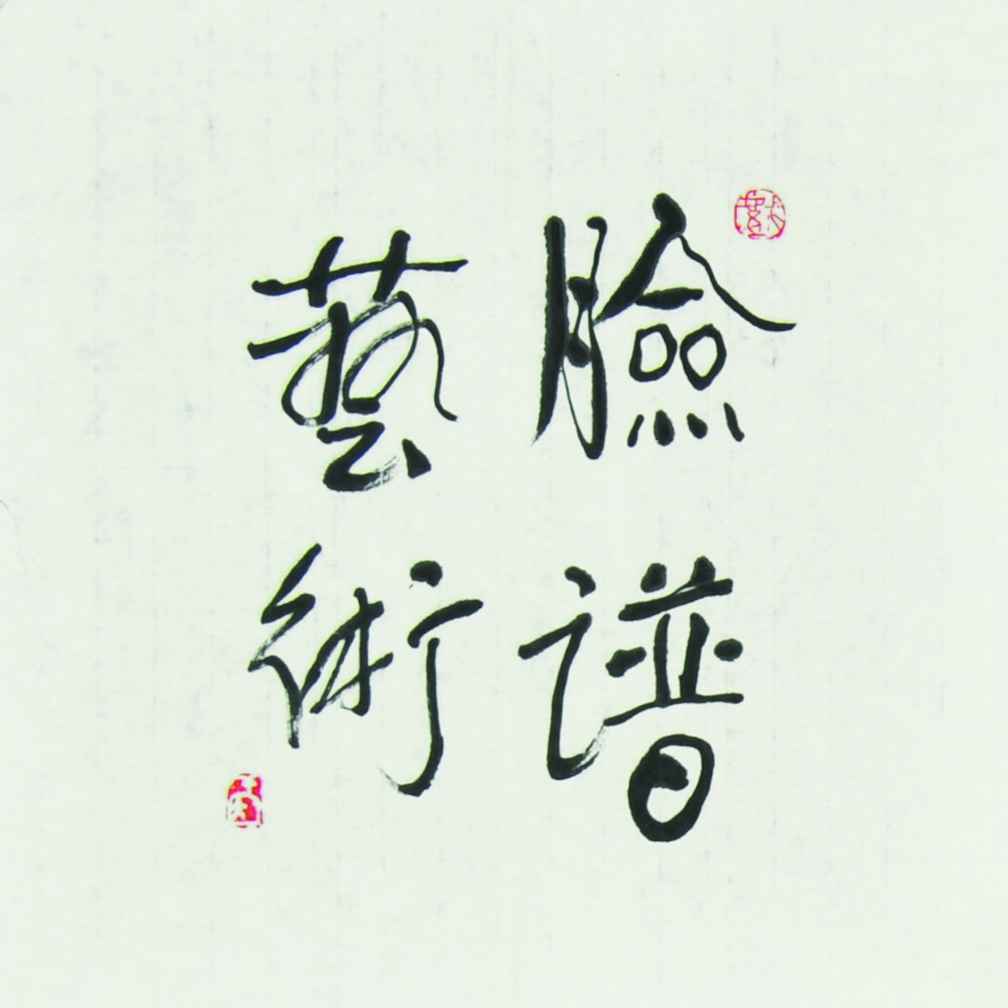 臉譜
藝術